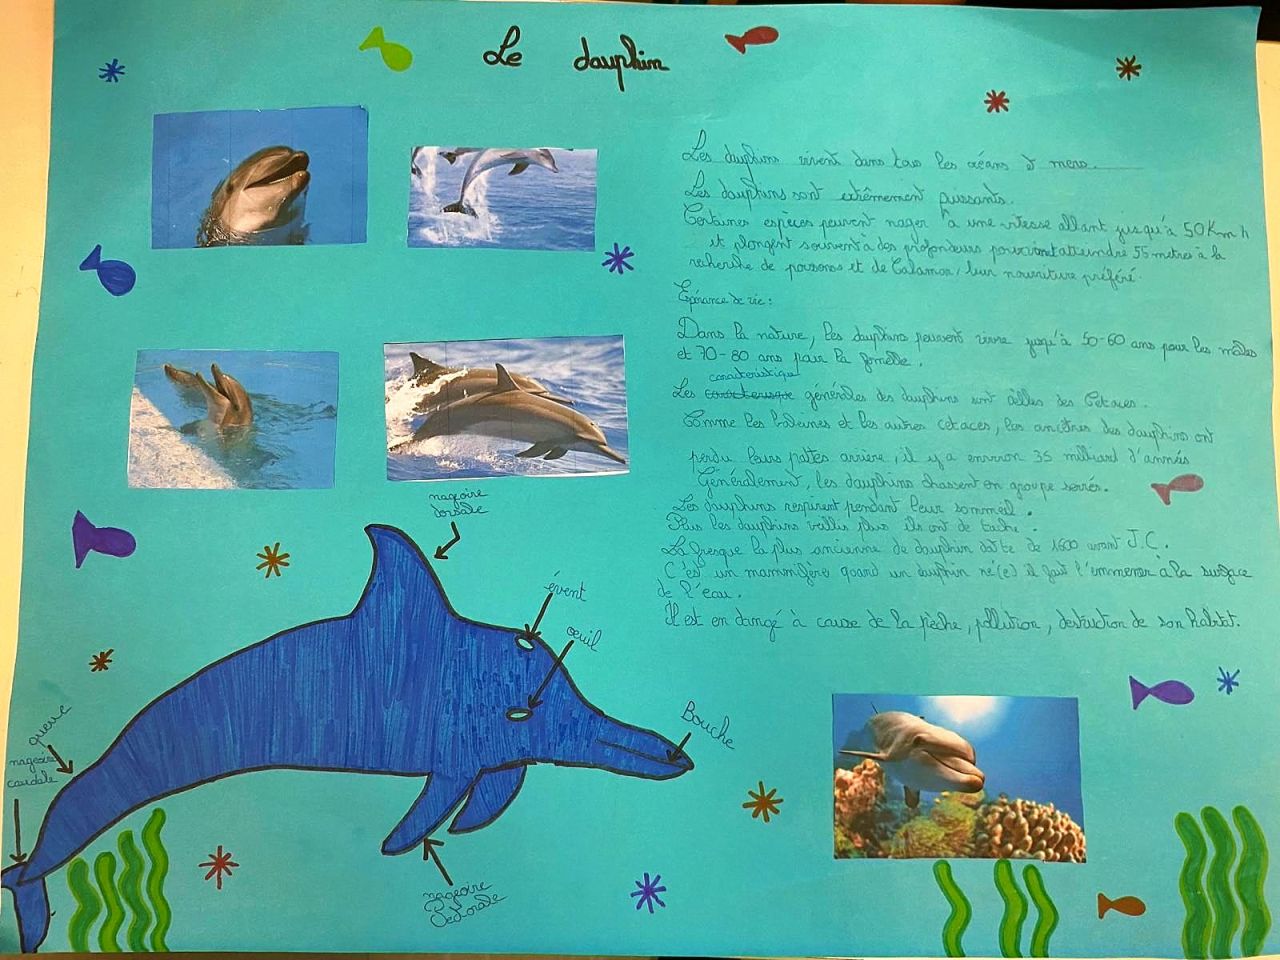 Le dauphin
Les dauphins vivent dans tous les océans et mers.
Les dauphins sont extrêmement puissants.
Certaines espèces peuvent nager à une vitesse allant jusqu'à 50 Km h
et plongent souvent à des profondeurs pouvant atteindre 55 mètres à la
recherche de poissons et de Calamar, leur nourriture préféré.
Epérance de vie :
Dans la nature, les dauphins peuvent vivre jusqu'à 50-60 ans pour les mâles
et 70-80 ans pour la femelle.
caracteristique
Les générales des dauphins sont celles des Cetaces.
Comme les baleines et les autres cetaces, les ancêtres des dauphins ont
perdu leurs pattes arrière, il y a environ 35 milliard d'années
Généralement, les dauphins chassent en groupe serrés.
Les dauphins respirent pendant leur sommeil.
Plus les dauphins vieillis plus ils ont de tache.
La fresque la plus ancienne de dauphin date de 1600 avant J.C.
C'est un mammifère quand un dauphin né(e) il faut l'emmener a la surface
de l'eau.
Il est en dangé à cause de la pêche, pollution, destruction de son habitat.
nageoire
dorsale
évent
œuil
Bouche
queue
nageoire
caudale
nageoire
Pectorale